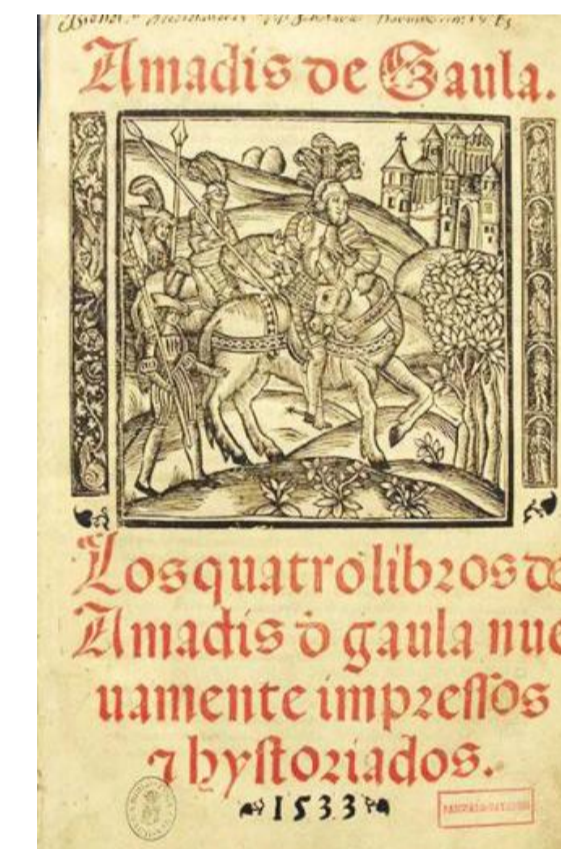 Amadis de Gaula.
Los quatro libros de
Amadis d̾ gaula nue
uamente impressos
⁊ hystoriados.
1533